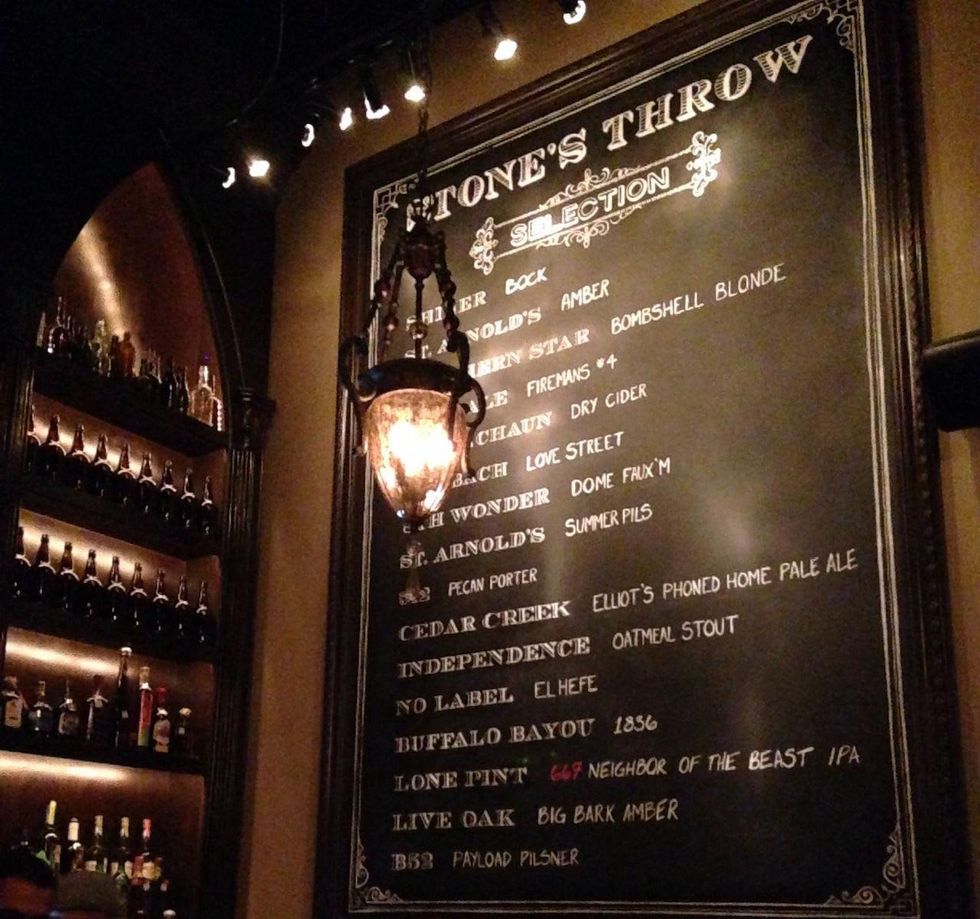 STONE'S THROW
SELECTION
SHINER BOCK
ST. ARNOLD'S AMBER
HERN STAR BOMBSHELL BLONDE
ALE FIREMANS #4
CHAUN DRY CIDER
BACH LOVE STREET
8TH WONDER DOME FAUX'M
ST. ARNOLD'S SUMMER PILS
512 PECAN PORTER
CEDAR CREEK ELLIOT'S PHONED HOME PALE ALE
INDEPENDENCE OATMEAL STOUT
NO LABEL EL HEFE
BUFFALO BAYOU 1836
LONE PINT 667 NEIGHBOR OF THE BEAST IPA
LIVE OAK BIG BARK AMBER
B52 PAYLOAD PILSNER